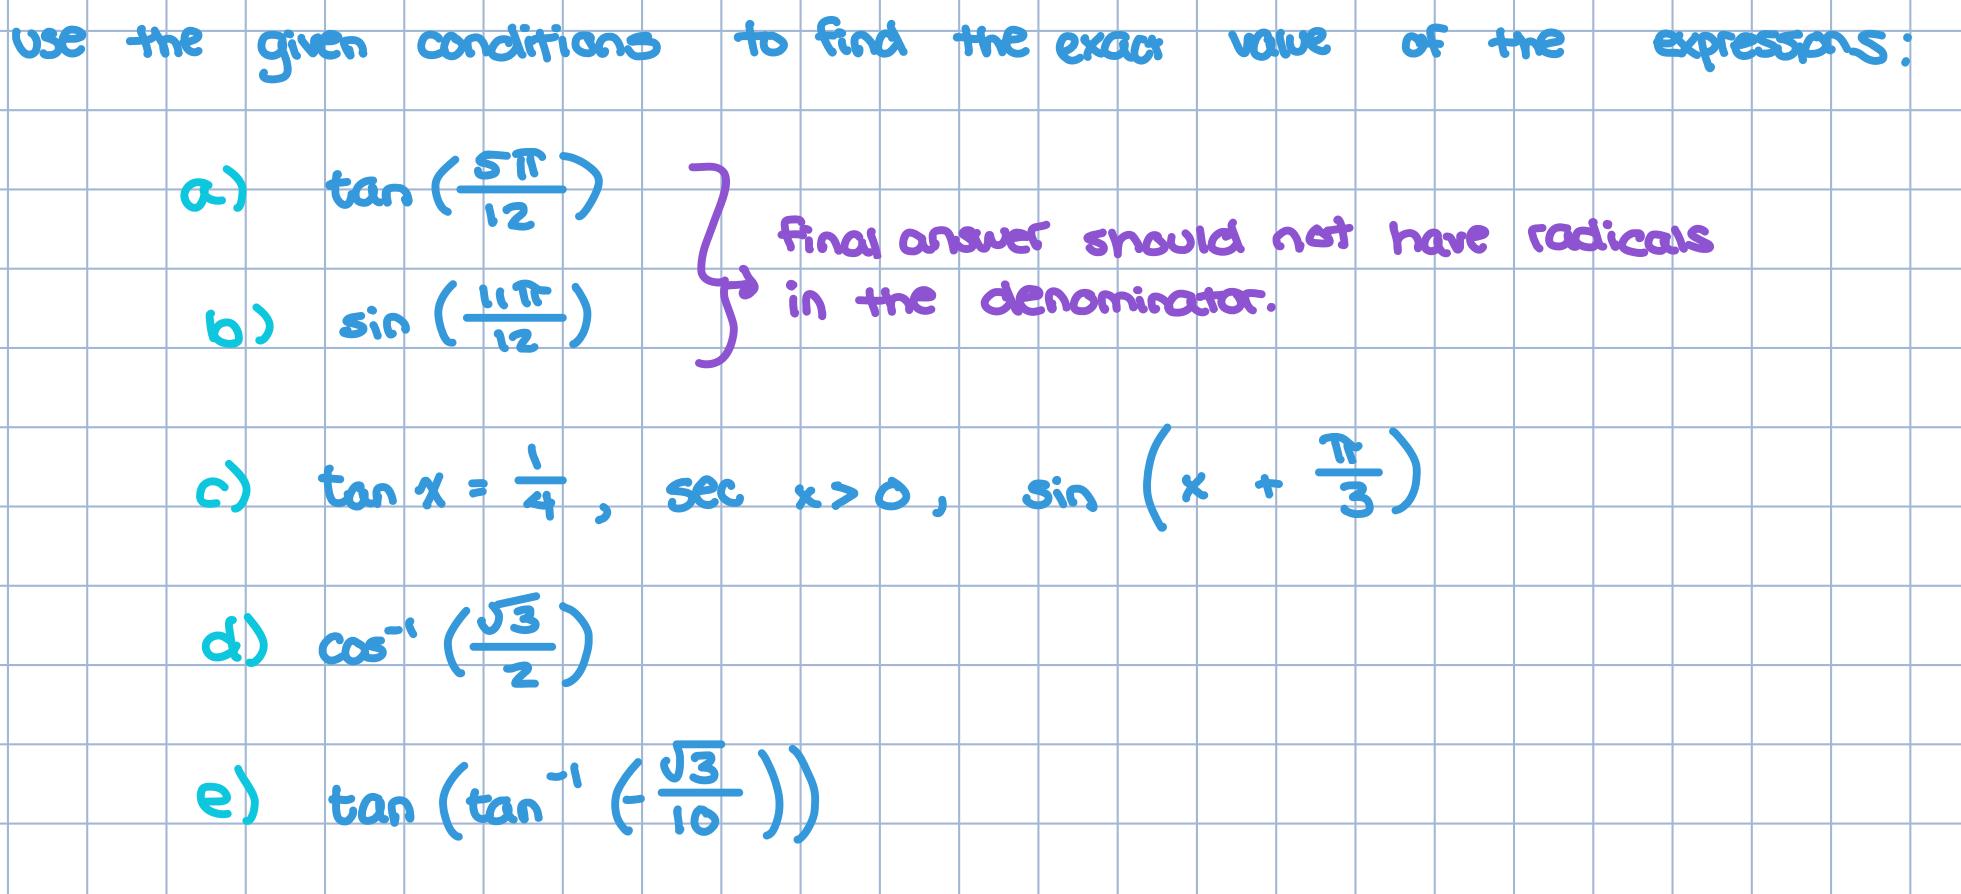 use the given conditions to find the exact value of the expressions:
a) tan (5π/12)
final answer should not have radicals
in the denominator.
b) sin (11π/12)
c) tan x = 1/4, sec x > 0, sin (x + π/3)
d) cos⁻¹ (√3/2)
e) tan (tan⁻¹ (-√3/10))